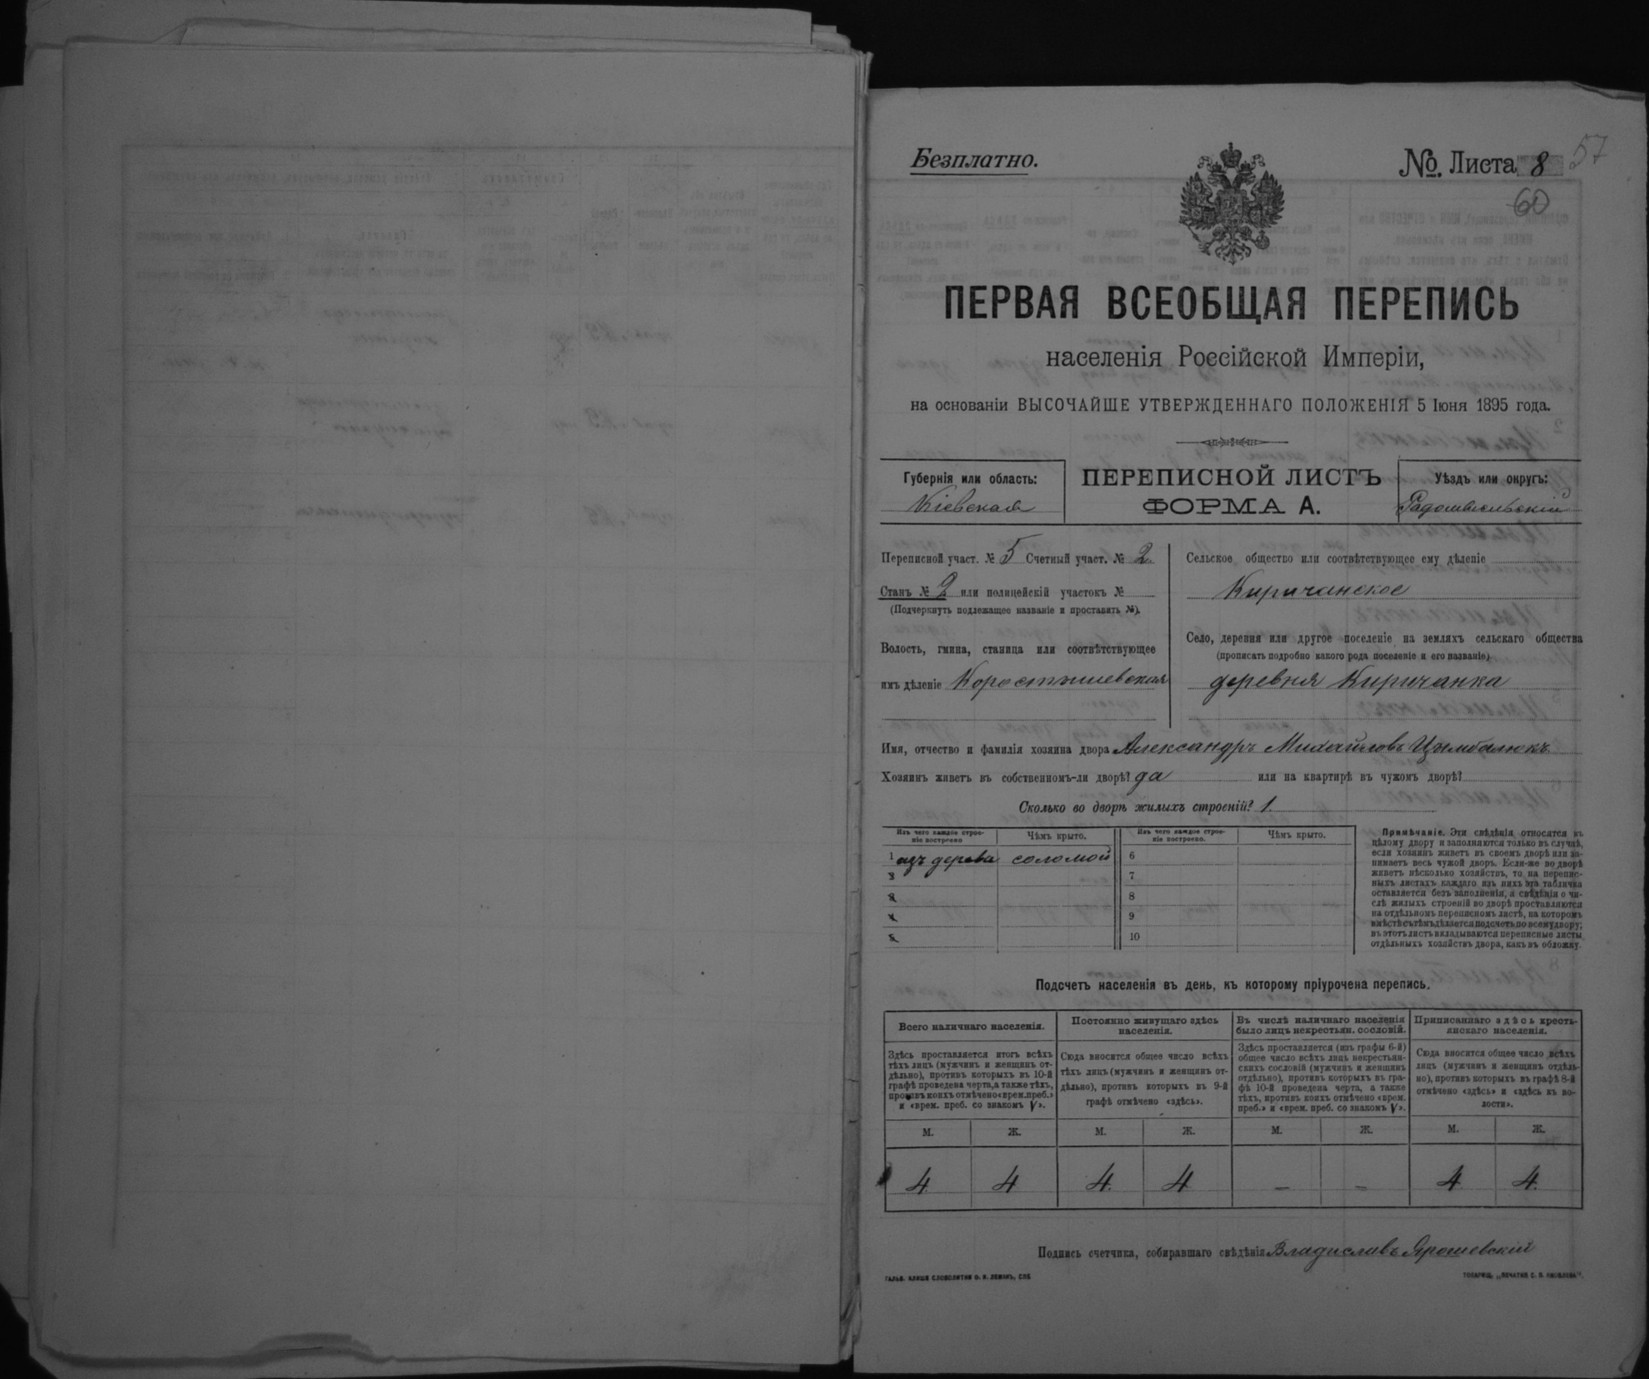 Безплатно.
№. Листа 8
57
60
ПЕРВАЯ ВСЕОБЩАЯ ПЕРЕПИСЬ
населенія Россійской Имперіи,
на основаніи ВЫСОЧАЙШЕ УТВЕРЖДЕННАГО ПОЛОЖЕНІЯ 5 Іюня 1895 года.
Губернія или область:
Кіевская
ПЕРЕПИСНОЙ ЛИСТЪ
ФОРМА А.
Уѣздъ или округъ:
Радомысльскій
Переписной участ. № 5 Счетный участ. № 2
Станъ № 2 или полицейскій участокъ №
(Подчеркнуть подлежащее названіе и проставить №).
Волость, гмина, станица или соотвѣтствующее
имъ дѣленіе Коростышевская
Сельское общество или соотвѣтствующее ему дѣленіе
Киричанское
Село, деревня или другое поселеніе на земляхъ сельскаго общества
(прописать подробно какого рода поселеніе и его названіе)
деревня Киричанка
Имя, отчество и фамилія хозяина двора Александръ Михайловъ Цымбалюкъ
Хозяинъ живетъ въ собственномъ-ли дворѣ? да или на квартирѣ въ чужомъ дворѣ?
Сколько во дворѣ жилыхъ строеній? 1.
Изъ чего каждое строе-
ніе построено
Чѣмъ крыто.
Изъ чего каждое строе-
ніе построено.
Чѣмъ крыто.
1 изъ дерева соломой
6
7
8
9
10
Примѣчаніе. Эти свѣдѣнія относятся къ
цѣлому двору и заполняются только въ случаѣ,
если хозяинъ живетъ въ своемъ дворѣ или за-
нимаетъ весь чужой дворъ. Если-же во дворѣ
живетъ нѣсколько хозяйствъ, то на перепис-
ныхъ листахъ каждаго изъ нихъ эта табличка
оставляется безъ заполненія, а свѣдѣнія о чи-
слѣ жилыхъ строеній во дворѣ проставляются
на отдѣльномъ переписномъ листѣ, на которомъ
вмѣстѣ съ тѣмъ дѣлается подсчетъ по всему двору;
въ этотъ листъ вкладываются переписные листы
отдѣльныхъ хозяйствъ двора, какъ въ обложку.
Подсчетъ населенія въ день, къ которому пріурочена перепись.
Всего наличнаго населенія.
Здѣсь проставляется итогъ всѣхъ
тѣхъ лицъ (мужчинъ и женщинъ от-
дѣльно), противъ которыхъ въ 10-й
графѣ проведена черта, а также тѣхъ,
противъ коихъ отмѣчено «врем. преб.»
и «врем. преб. со знакомъ V».
Постоянно живущаго здѣсь
населенія.
Сюда вносится общее число всѣхъ
тѣхъ лицъ (мужчинъ и женщинъ от-
дѣльно), противъ которыхъ въ 9-й
графѣ отмѣчено «здѣсь».
Въ числѣ наличнаго населенія
было лицъ некрестьян. сословій.
Здѣсь проставляется (изъ графы 6-й)
общее число всѣхъ лицъ некрестьян-
скихъ сословій (мужчинъ и женщинъ
отдѣльно), противъ которыхъ въ гра-
фѣ 10-й проведена черта, а также
тѣхъ, противъ коихъ отмѣчено «врем.
преб.» и «врем. преб. со знакомъ V».
Приписаннаго здѣсь кресть-
янскаго населенія.
Сюда вносится общее число всѣхъ
лицъ (мужчинъ и женщинъ отдѣль-
но), противъ которыхъ въ графѣ 8-й
отмѣчено «здѣсь» и «здѣсь въ во-
лости».
М. Ж. М. Ж. М. Ж. М. Ж.
4 4 4 4 – – 4 4
Подпись счетчика, собиравшаго свѣдѣнія Владиславъ Ярошевскій